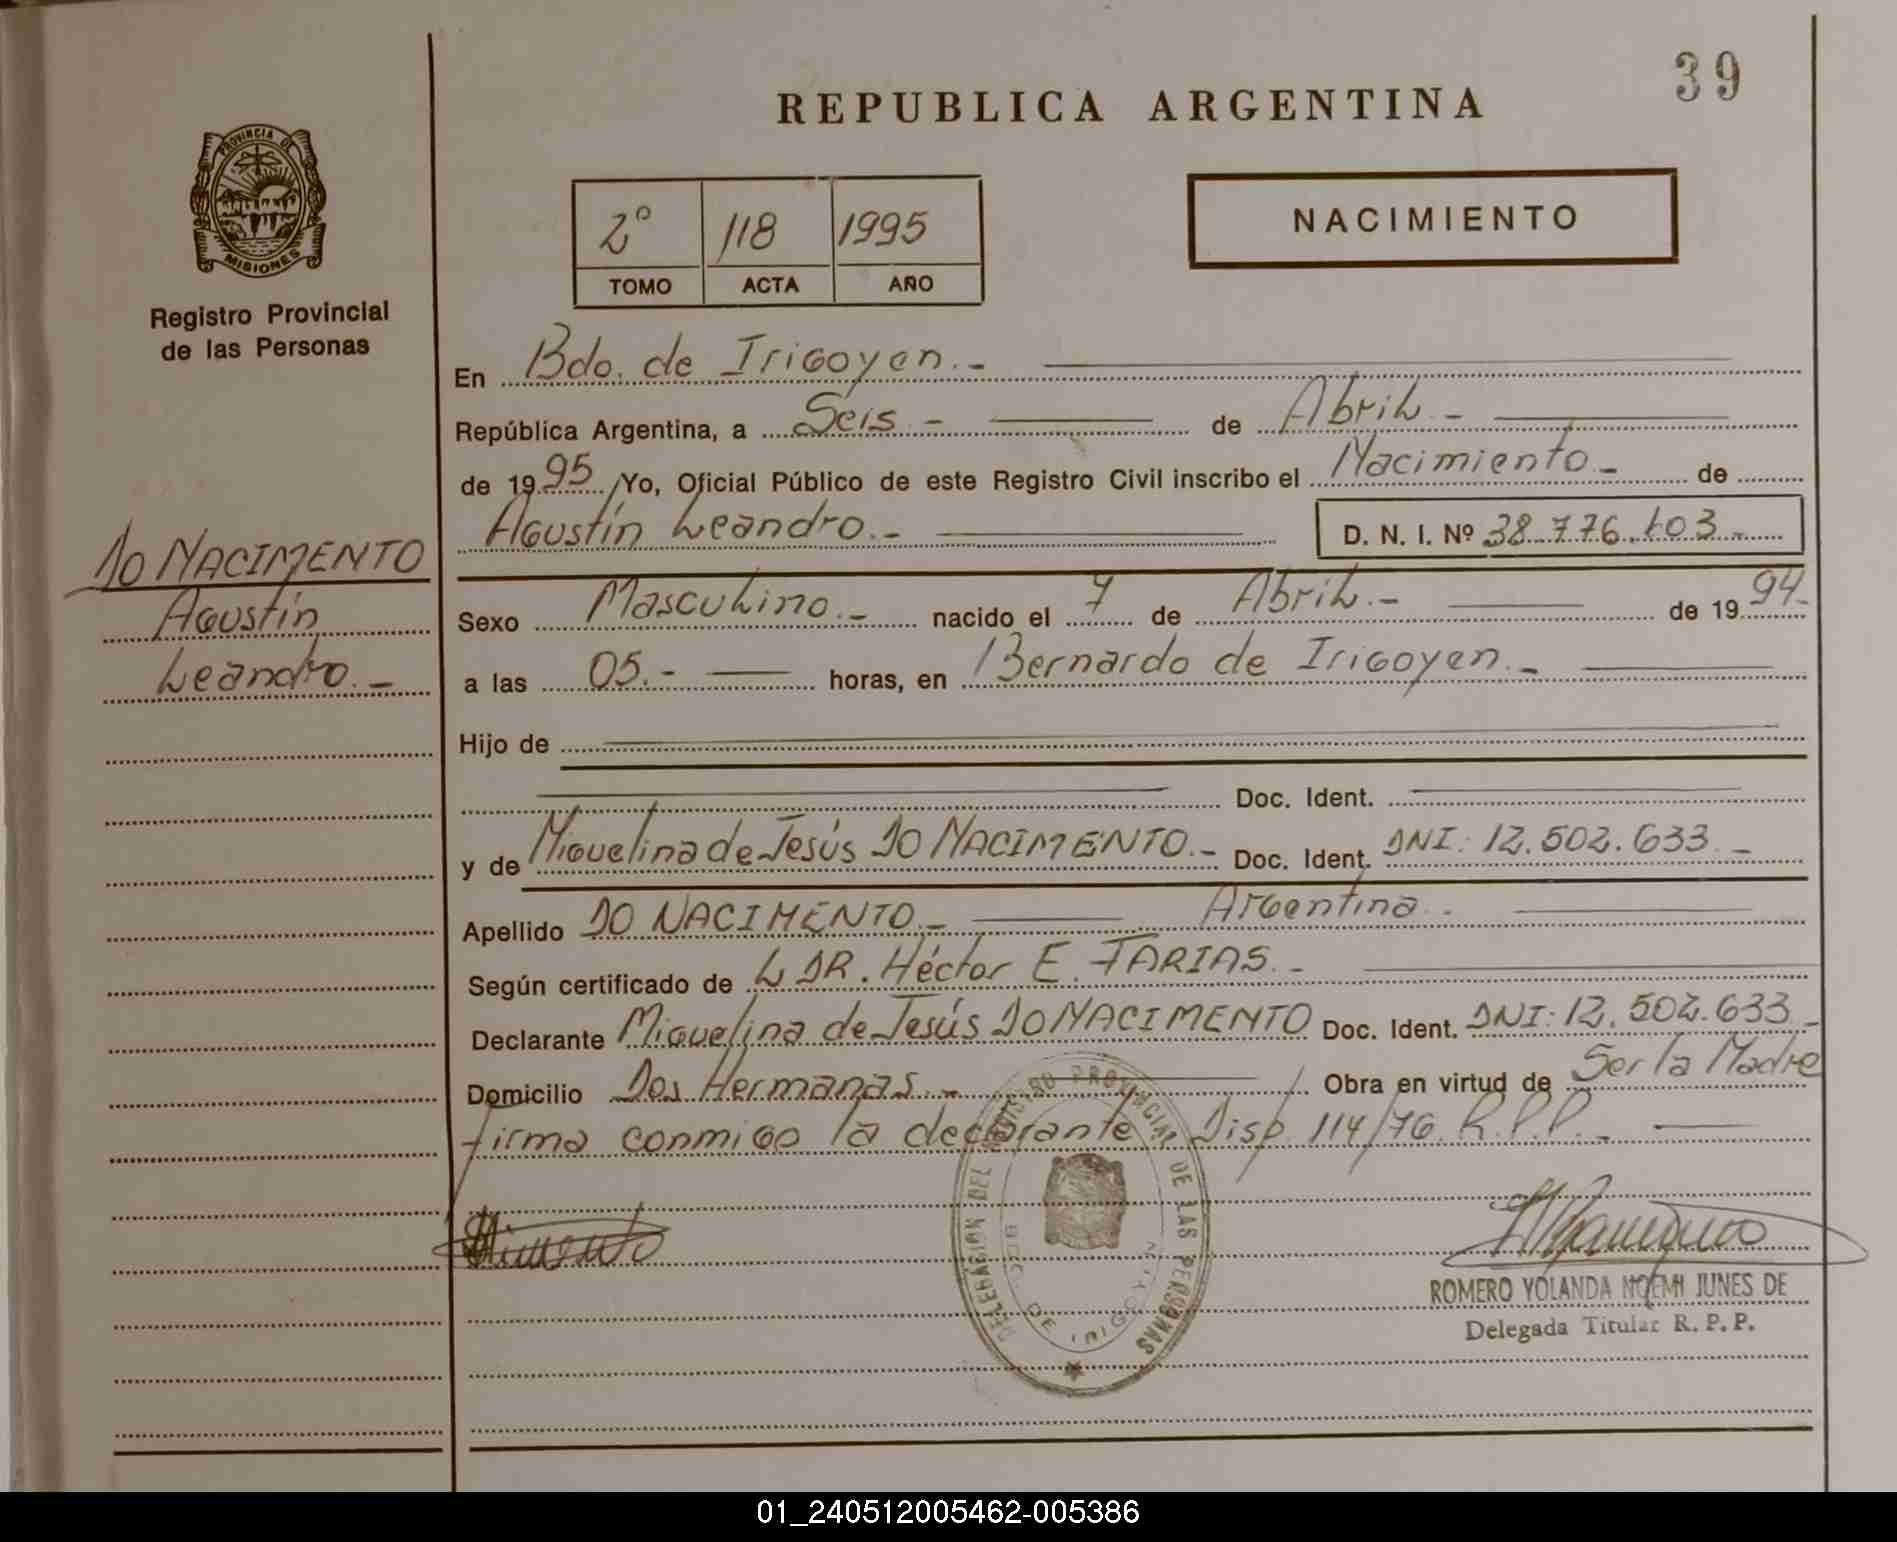 39
REPUBLICA ARGENTINA
PROVINCIA DE
MISIONES
Registro Provincial
de las Personas
2º 118 1995
TOMO ACTA AÑO
NACIMIENTO
En Bdo. de Irigoyen.-
República Argentina, a Seis.- de Abril.-
de 1995 Yo, Oficial Público de este Registro Civil inscribo el Nacimiento.- de
Agustín Leandro.- D. N. I. Nº 38.776.103.-
DO NACIMENTO
Agustín
Leandro.-
Sexo Masculino.- nacido el 7 de Abril.- de 1994.-
a las 05.- horas, en Bernardo de Irigoyen.-
Hijo de
Doc. Ident.
y de Miguelina de Jesús DO NACIMENTO.- Doc. Ident. DNI: 12.502.633.-
Apellido DO NACIMENTO.- Argentina.
Según certificado de L DR. Héctor E. FARIAS.-
Declarante Miguelina de Jesús DO NACIMENTO Doc. Ident. DNI: 12.502.633.-
Domicilio Dos Hermanas.- Obra en virtud de Ser la Madre
firma conmigo la declarante Disp. 114/76 R.P.P.-
DELEGACION DEL REGISTRO PROVINCIAL DE LAS PERSONAS
BDO. DE IRIGOYEN
ROMERO YOLANDA NOEMI JUNES DE
Delegada Titular R. P. P.
01_240512005462-005386